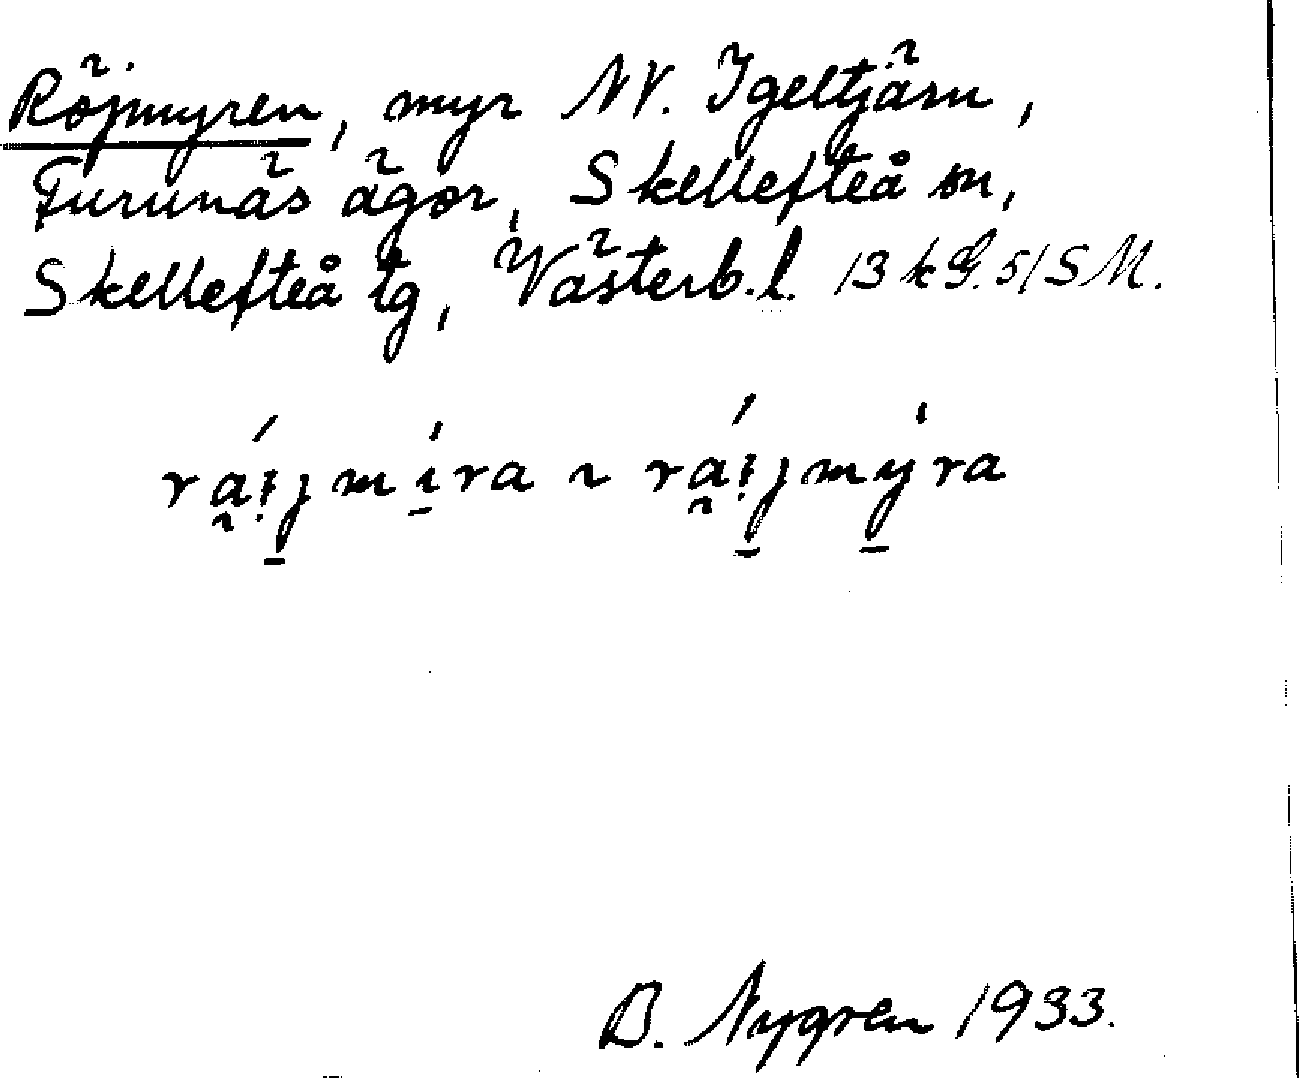 Röjmyren, myr NV. Igeltjärn,
Furunäs ägor, Skellefteå sn,
Skellefteå tg, Västerb. l. 13 k G. 5/5 M.
rá̰ijmíra ~ rá̰ijmýra
B. Nygren 1933.